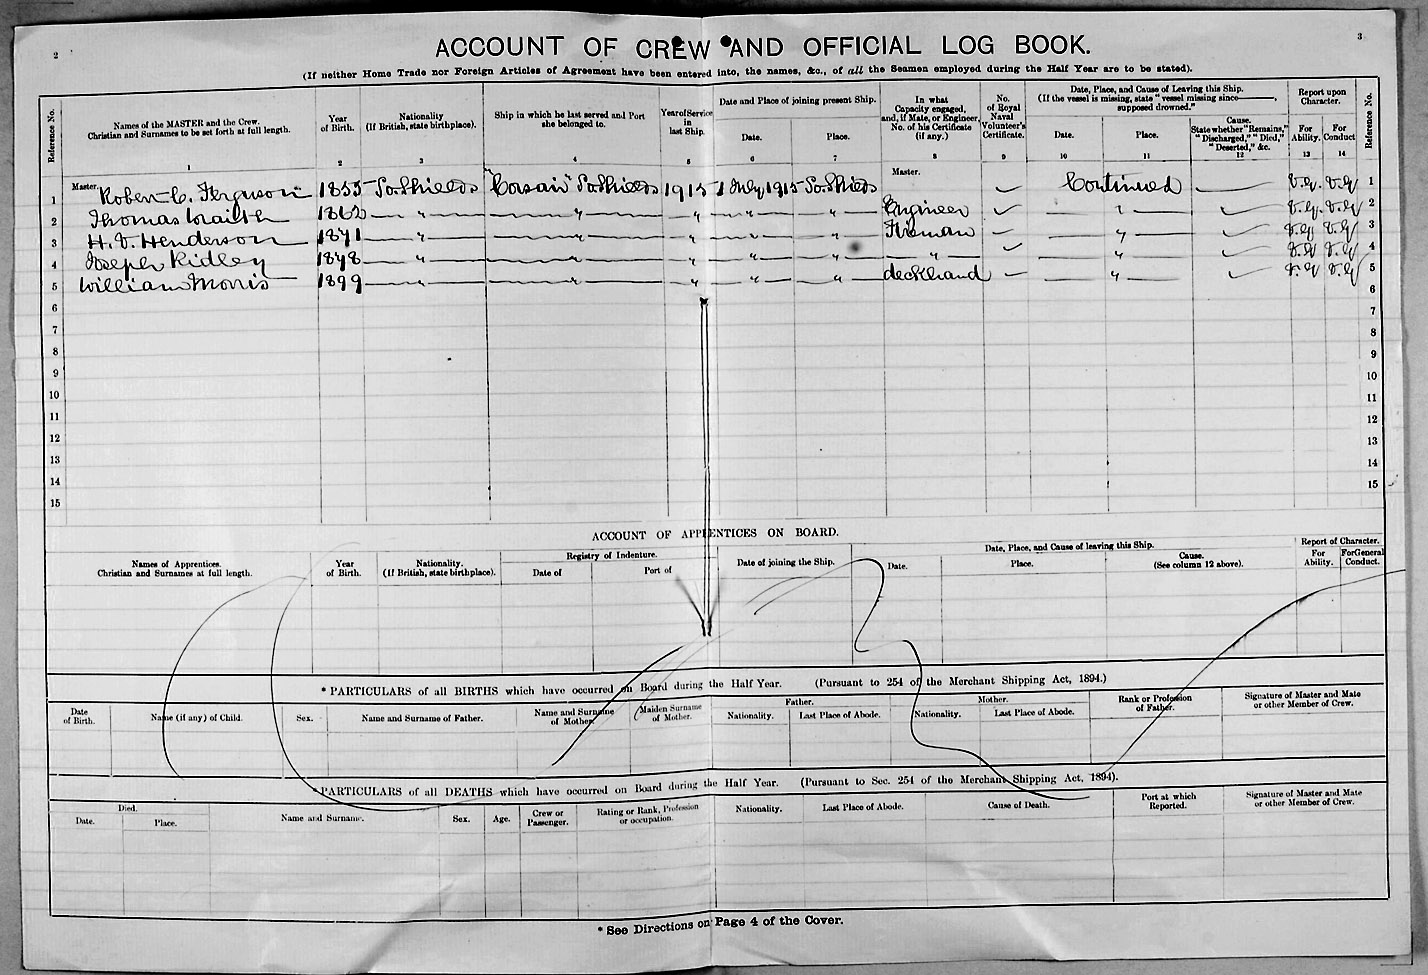 2
3
ACCOUNT OF CREW AND OFFICIAL LOG BOOK.
(If neither Home Trade nor Foreign Articles of Agreement have been entered into, the names, &c., of all the Seamen employed during the Half Year are to be stated).
Reference No.
Names of the MASTER and the Crew.
Christian and Surnames to be set forth at full length.
1
Year
of Birth.
2
Nationality
(If British, state birthplace).
3
Ship in which he last served and Port
she belonged to.
4
Year of Service
in
last Ship.
5
Date and Place of joining present Ship.
Date.
6
Place.
7
In what
Capacity engaged,
and, if Mate, or Engineer,
No. of his Certificate
(if any.)
8
No.
of Royal
Naval
Volunteer's
Certificate.
9
Date, Place, and Cause of Leaving this Ship.
(If the vessel is missing, state "vessel missing since ———,
supposed drowned."
Date.
10
Place.
11
Cause.
State whether "Remains,"
"Discharged," "Died,"
"Deserted," &c.
12
Report upon
Character.
For
Ability.
13
For
Conduct
14
Reference No.
1 Master. Robert C. Ferguson 1855 So. Shields "Corsair" So Shields 1915 1 July 1915 So. Shields Master. ✓ Continued V.G. V.G 1
2 Thomas Wraith 1862 " " " " " Engineer ✓ " ✓ V.G. V.G 2
3 H. V. Henderson 1871 " " " " " Fireman ✓ " ✓ V.G V.G 3
4 Joseph Ridley 1878 " " " " " " ✓ " ✓ V.G V.G 4
5 William Morris 1899 " " " " " deckhand ✓ " ✓ V.G V.G 5
6 6
7 7
8 8
9 9
10 10
11 11
12 12
13 13
14 14
15 15
ACCOUNT OF APPRENTICES ON BOARD.
Names of Apprentices.
Christian and Surnames at full length.
Year
of Birth.
Nationality.
(If British, state birthplace).
Registry of Indenture.
Date of
Port of
Date of joining the Ship.
Date, Place, and Cause of leaving this Ship.
Date.
Place.
Cause.
(See column 12 above).
Report of Character.
For
Ability.
For General
Conduct.
* PARTICULARS of all BIRTHS which have occurred on Board during the Half Year. (Pursuant to 254 of the Merchant Shipping Act, 1894.)
Date
of Birth.
Name (if any) of Child.
Sex.
Name and Surname of Father.
Name and Surname
of Mother.
Maiden Surname
of Mother.
Father.
Nationality.
Last Place of Abode.
Mother.
Nationality.
Last Place of Abode.
Rank or Profession
of Father.
Signature of Master and Mate
or other Member of Crew.
* PARTICULARS of all DEATHS which have occurred on Board during the Half Year. (Pursuant to Sec. 254 of the Merchant Shipping Act, 1894).
Died.
Date.
Place.
Name and Surname.
Sex.
Age.
Crew or
Passenger.
Rating or Rank, Profession
or occupation.
Nationality.
Last Place of Abode.
Cause of Death.
Port at which
Reported.
Signature of Master and Mate
or other Member of Crew.
* See Directions on Page 4 of the Cover.